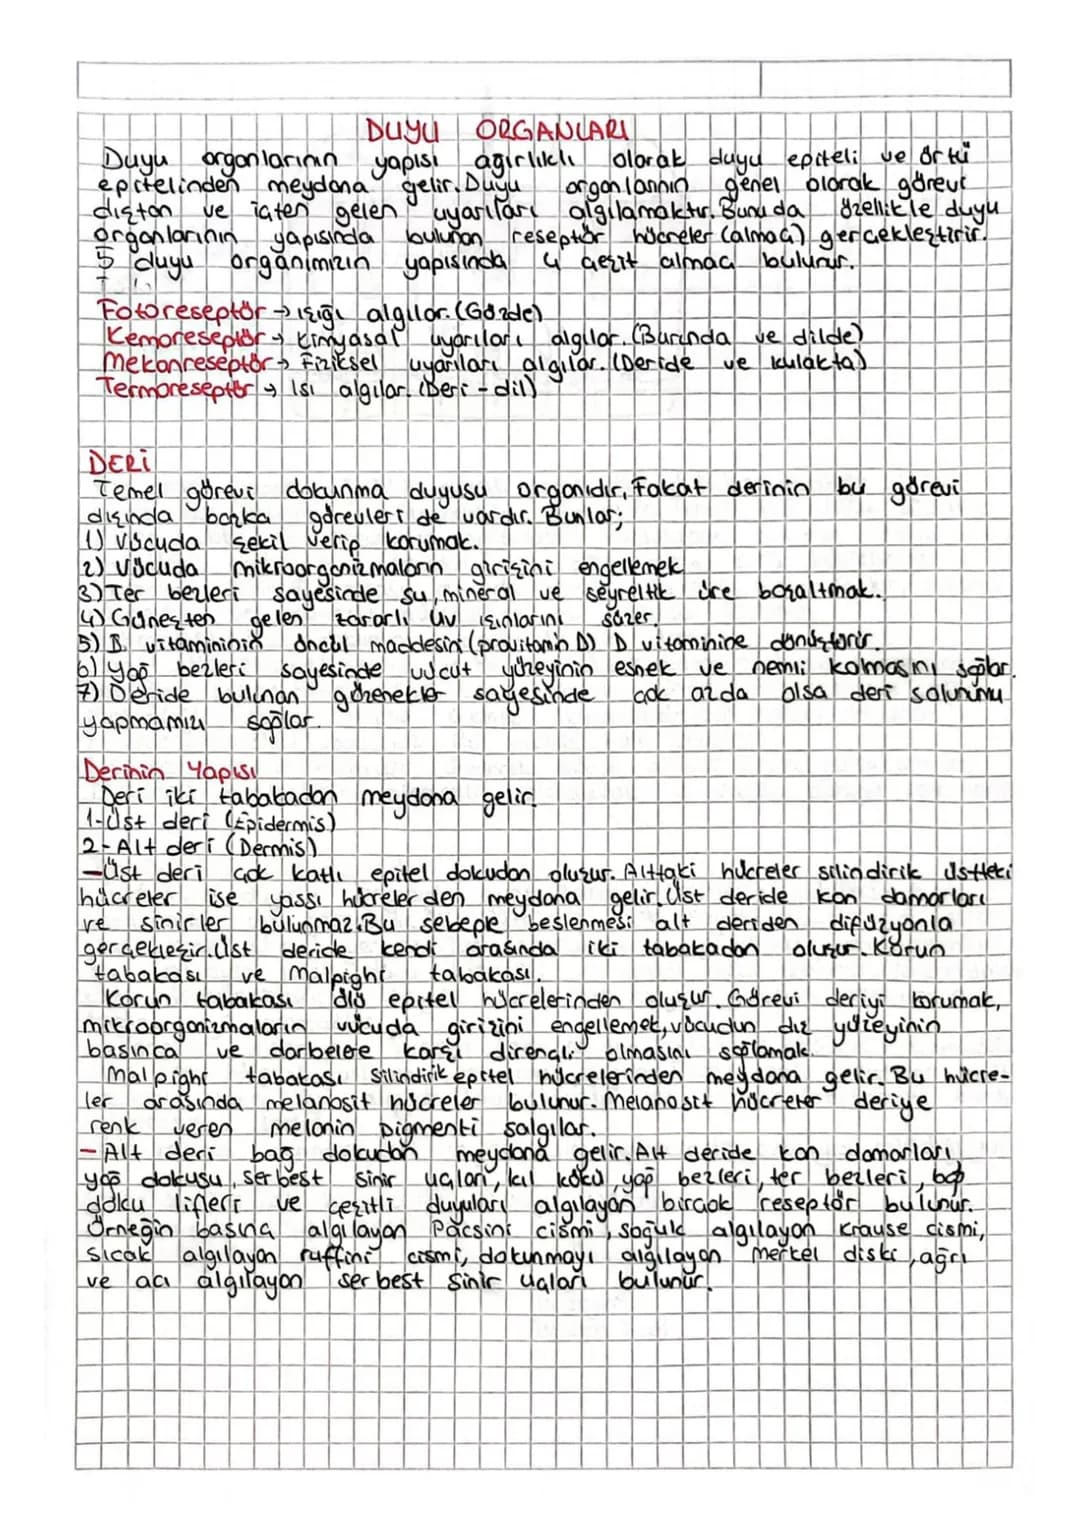 DUYU ORGANLARI
Duyu organlarının yapısı ağırlıklı olarak duyu epiteli ve örtü
epitelinden meydana gelir. Duyu organlarının genel olarak görevi
dıştan ve içten gelen uyarıları algılamaktır. Bunu da özellikle duyu
organlarının yapısında bulunan reseptör hücreler (almaç) gerçekleştirir.
5 duyu organımızın yapısında 4 çeşit almaç bulunur.
Fotoreseptör → ışığı algılar. (Gözde)
Kemoreseptör → kimyasal uyarıları algılar. (Burunda ve dilde)
Mekanreseptör → Fiziksel uyarıları algılar. (Deride ve kulakta)
Termoreseptör → Isı algılar. (Deri - dil)
DERİ
Temel görevi dokunma duyusu organıdır, Fakat derinin bu görevi
dışında başka görevleri de vardır. Bunlar;
1) Vücuda şekil verip korumak.
2) Vücuda mikroorganizmaların girişini engellemek
3) Ter bezleri sayesinde su, mineral ve seyreltik üre boşaltmak.
4) Güneşten gelen zararlı UV ışınlarını süzer.
5) D vitamininin öncül maddesini (provitamin D) D vitaminine dönüştürür.
6) Yağ bezleri sayesinde vücut yüzeyinin esnek ve nemli kalmasını sağlar.
7) Deride bulunan gözenekler sayesinde çok azda olsa deri solunumu
yapmamızı sağlar.
Derinin Yapısı
Deri iki tabakadan meydana gelir.
1-Üst deri (Epidermis)
2-Alt deri (Dermis)
-Üst deri çok katlı epitel dokudan oluşur. Alttaki hücreler silindirik üstteki
hücreler ise yassı hücrelerden meydana gelir. Üst deride kan damarları
ve sinirler bulunmaz. Bu sebeple beslenmesi alt deriden difüzyonla
gerçekleşir. Üst deride kendi arasında iki tabakadan oluşur. Korun
tabakası ve Malpighi tabakası.
Korun tabakası ölü epitel hücrelerinden oluşur. Görevi deriyi korumak,
mikroorganizmaların vücuda girişini engellemek, vücudun dış yüzeyinin
basınca ve darbelere karşı dirençli olmasını sağlamak.
Malpighi tabakası silindirik epitel hücrelerinden meydana gelir. Bu hücre-
ler arasında melanosit hücreler bulunur. Melanosit hücreler deriye
renk veren melanin pigmenti salgılar.
- Alt deri bağ dokudan meydana gelir. Alt deride kan damarları,
yağ dokusu, serbest sinir uçları, kıl kökü, yağ bezleri, ter bezleri, bağ
doku lifleri ve çeşitli duyuları algılayan birçok reseptör bulunur.
Örneğin basınç algılayan Pacsini cismi, soğuk algılayan Krause cismi,
sıcak algılayan ruffini cismi, dokunmayı algılayan merkel diski, ağrı
ve acı algılayan serbest sinir uçları bulunur.